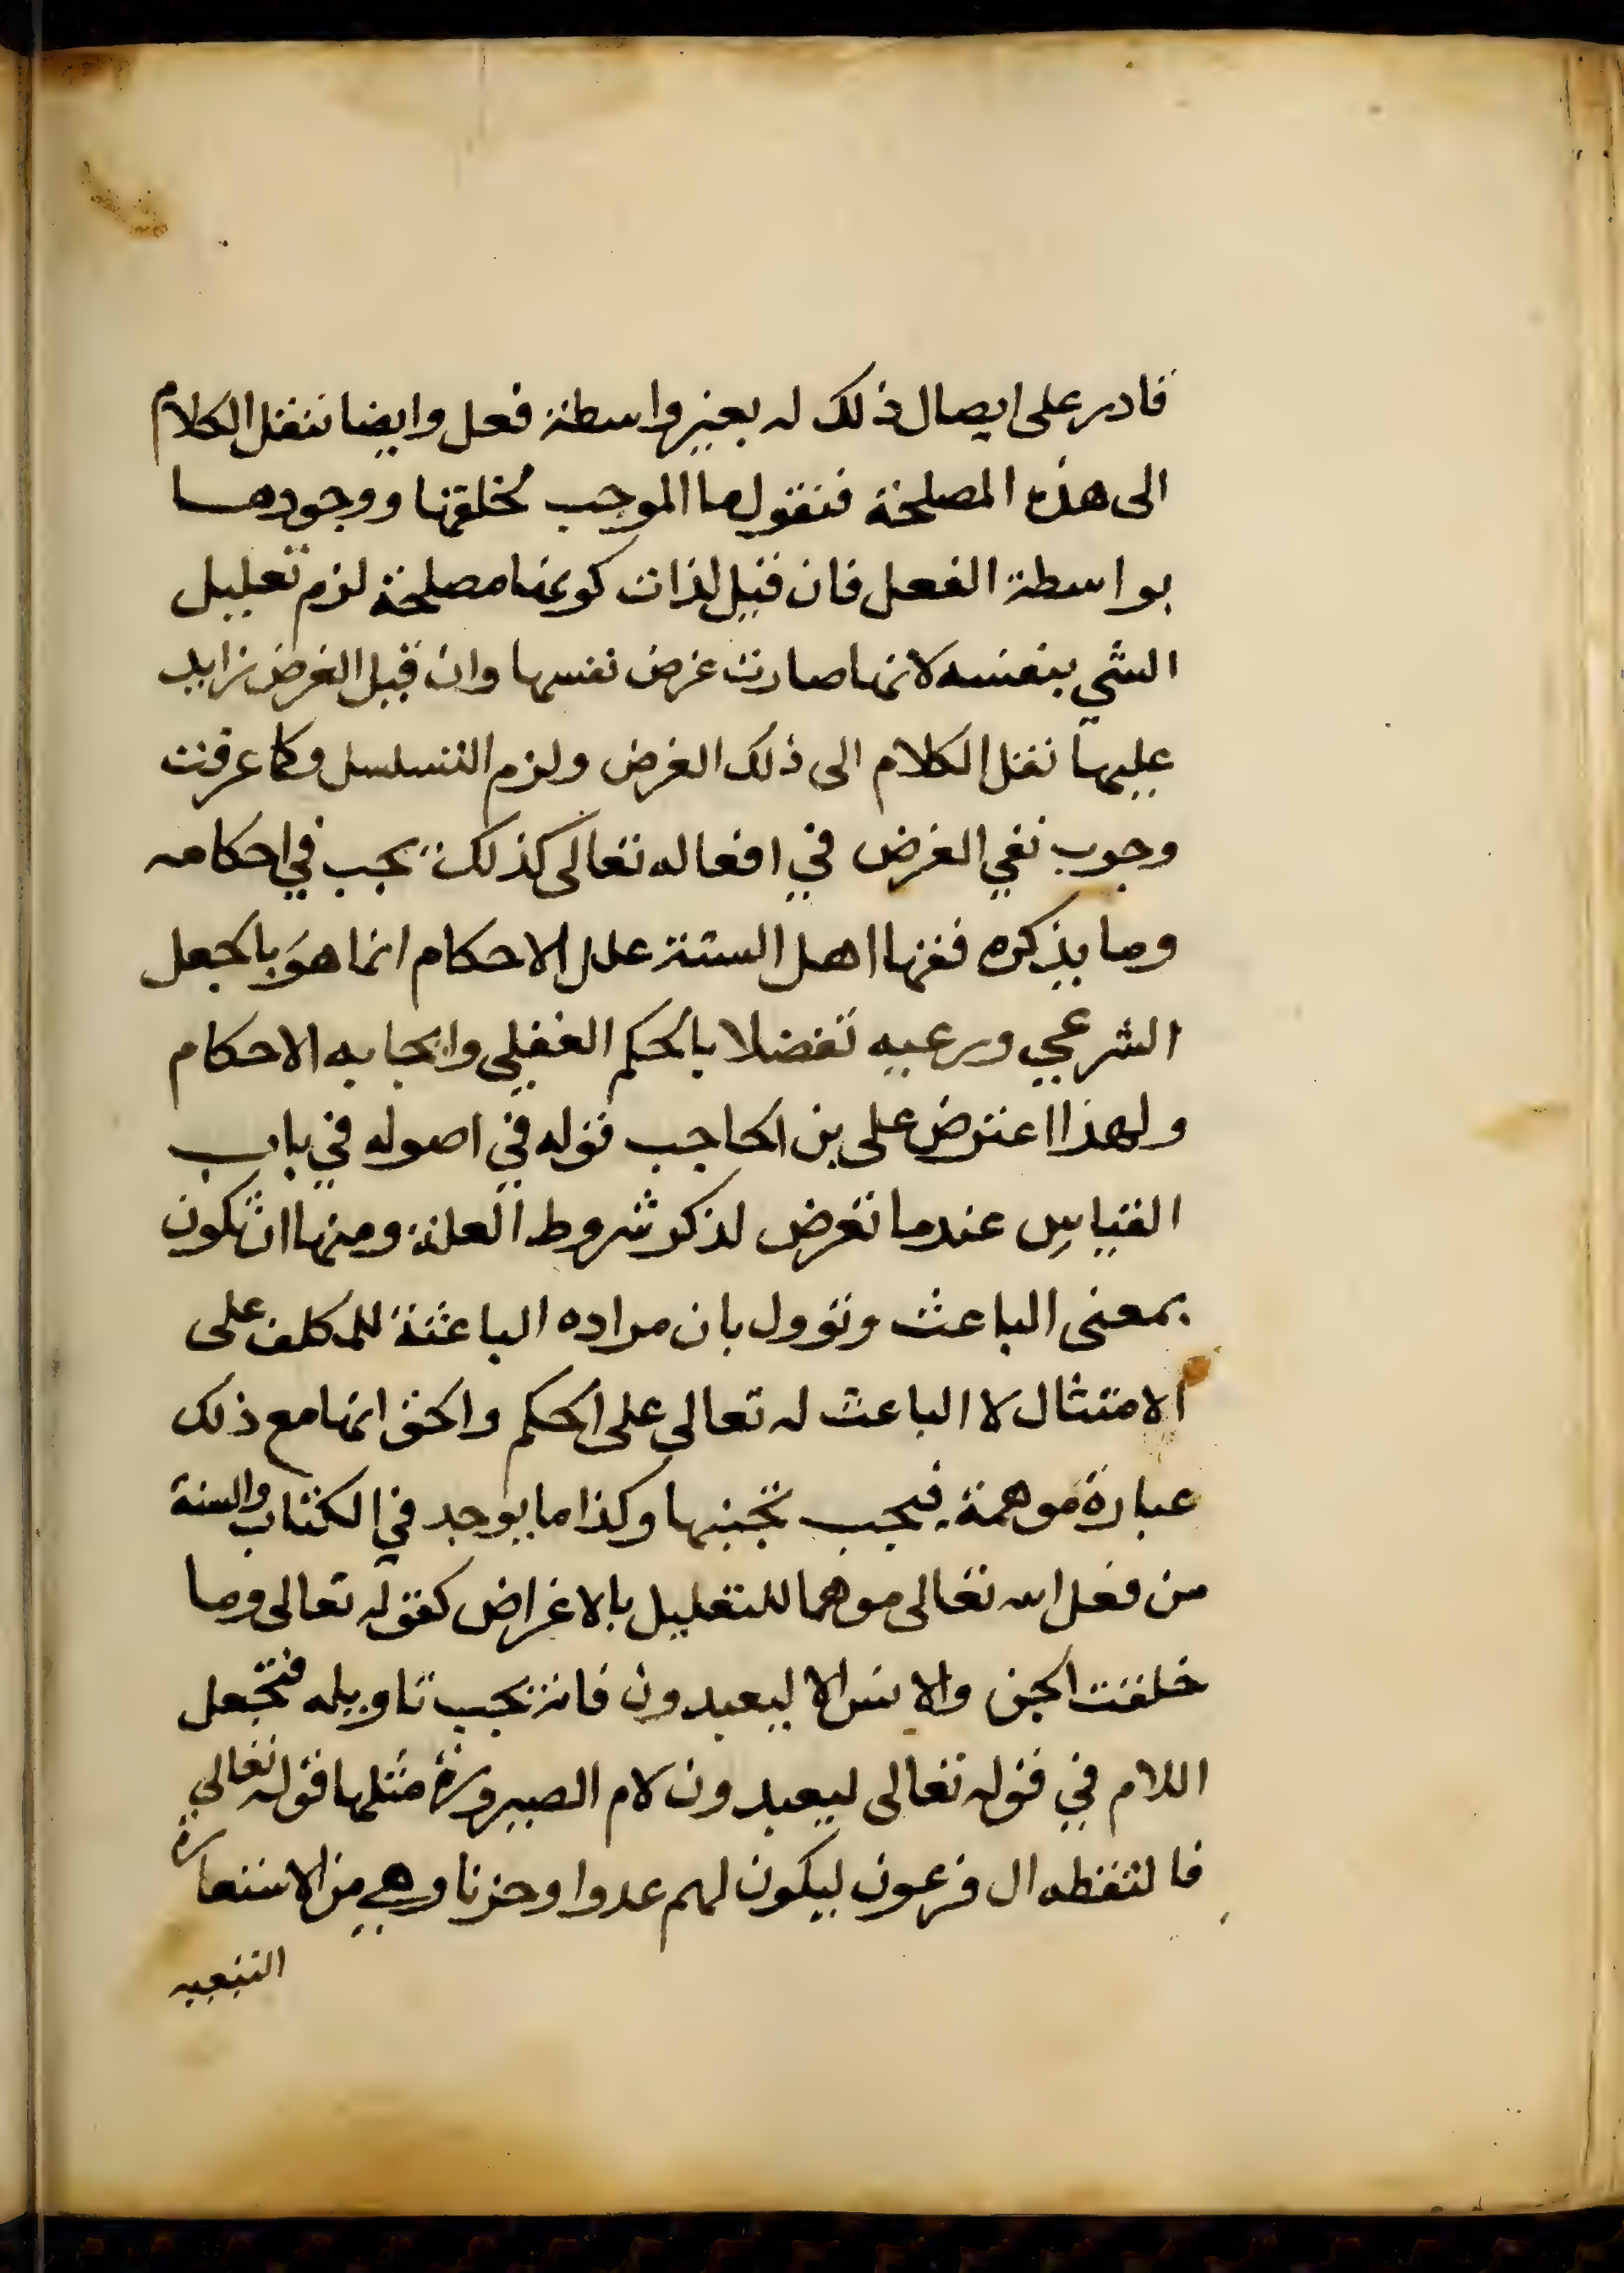 قادر على ايصال ذلك له بغير واسطة فعل وايضا ننقل الكلام
الى هذه المصلحة فنقول ما الموجب لخلقها ووجودها
بواسطة الفعل فان قيل لذات كونها مصلحة لزم تعليل
الشي بنفسه لانها صارت غرض نفسها وان قيل الغرض زايد
عليها نقل الكلام الى ذلك الغرض ولزم التسلسل وكما عرفت
وجوب نفي الغرض في افعاله تعالى كذلك يجب في احكامه
وما يذكره فقها اهل السنة علل الاحكام انما هو بالجعل
الشرعي ورعيه تفضلا بالحكم العقلي وايجابه الاحكام
ولهذا اعترض على بن الحاجب قوله في اصوله في باب
القياس عندما تعرض لذكر شروط العلة ومنها ان تكون
بمعنى الباعث وتوول بان مراده الباعثة للمكلف على
الامتثال لا الباعث له تعالى على الحكم والحق انها مع ذلك
عبارة موهمة فيجب تجنبها وكذا ما يوجد في الكتاب والسنة
من فعل الله تعالى موهما للتعليل بالاغراض كقوله تعالى وما
خلقت الجن والانس الا ليعبدون فانه يجب تاويله فتجعل
اللام في قوله تعالى ليعبدون لام الصيرورة مثلها قوله تعالى
فالتقطه ال فرعون ليكون لهم عدوا وحزنا وهي من الاستعارة
التبعيه